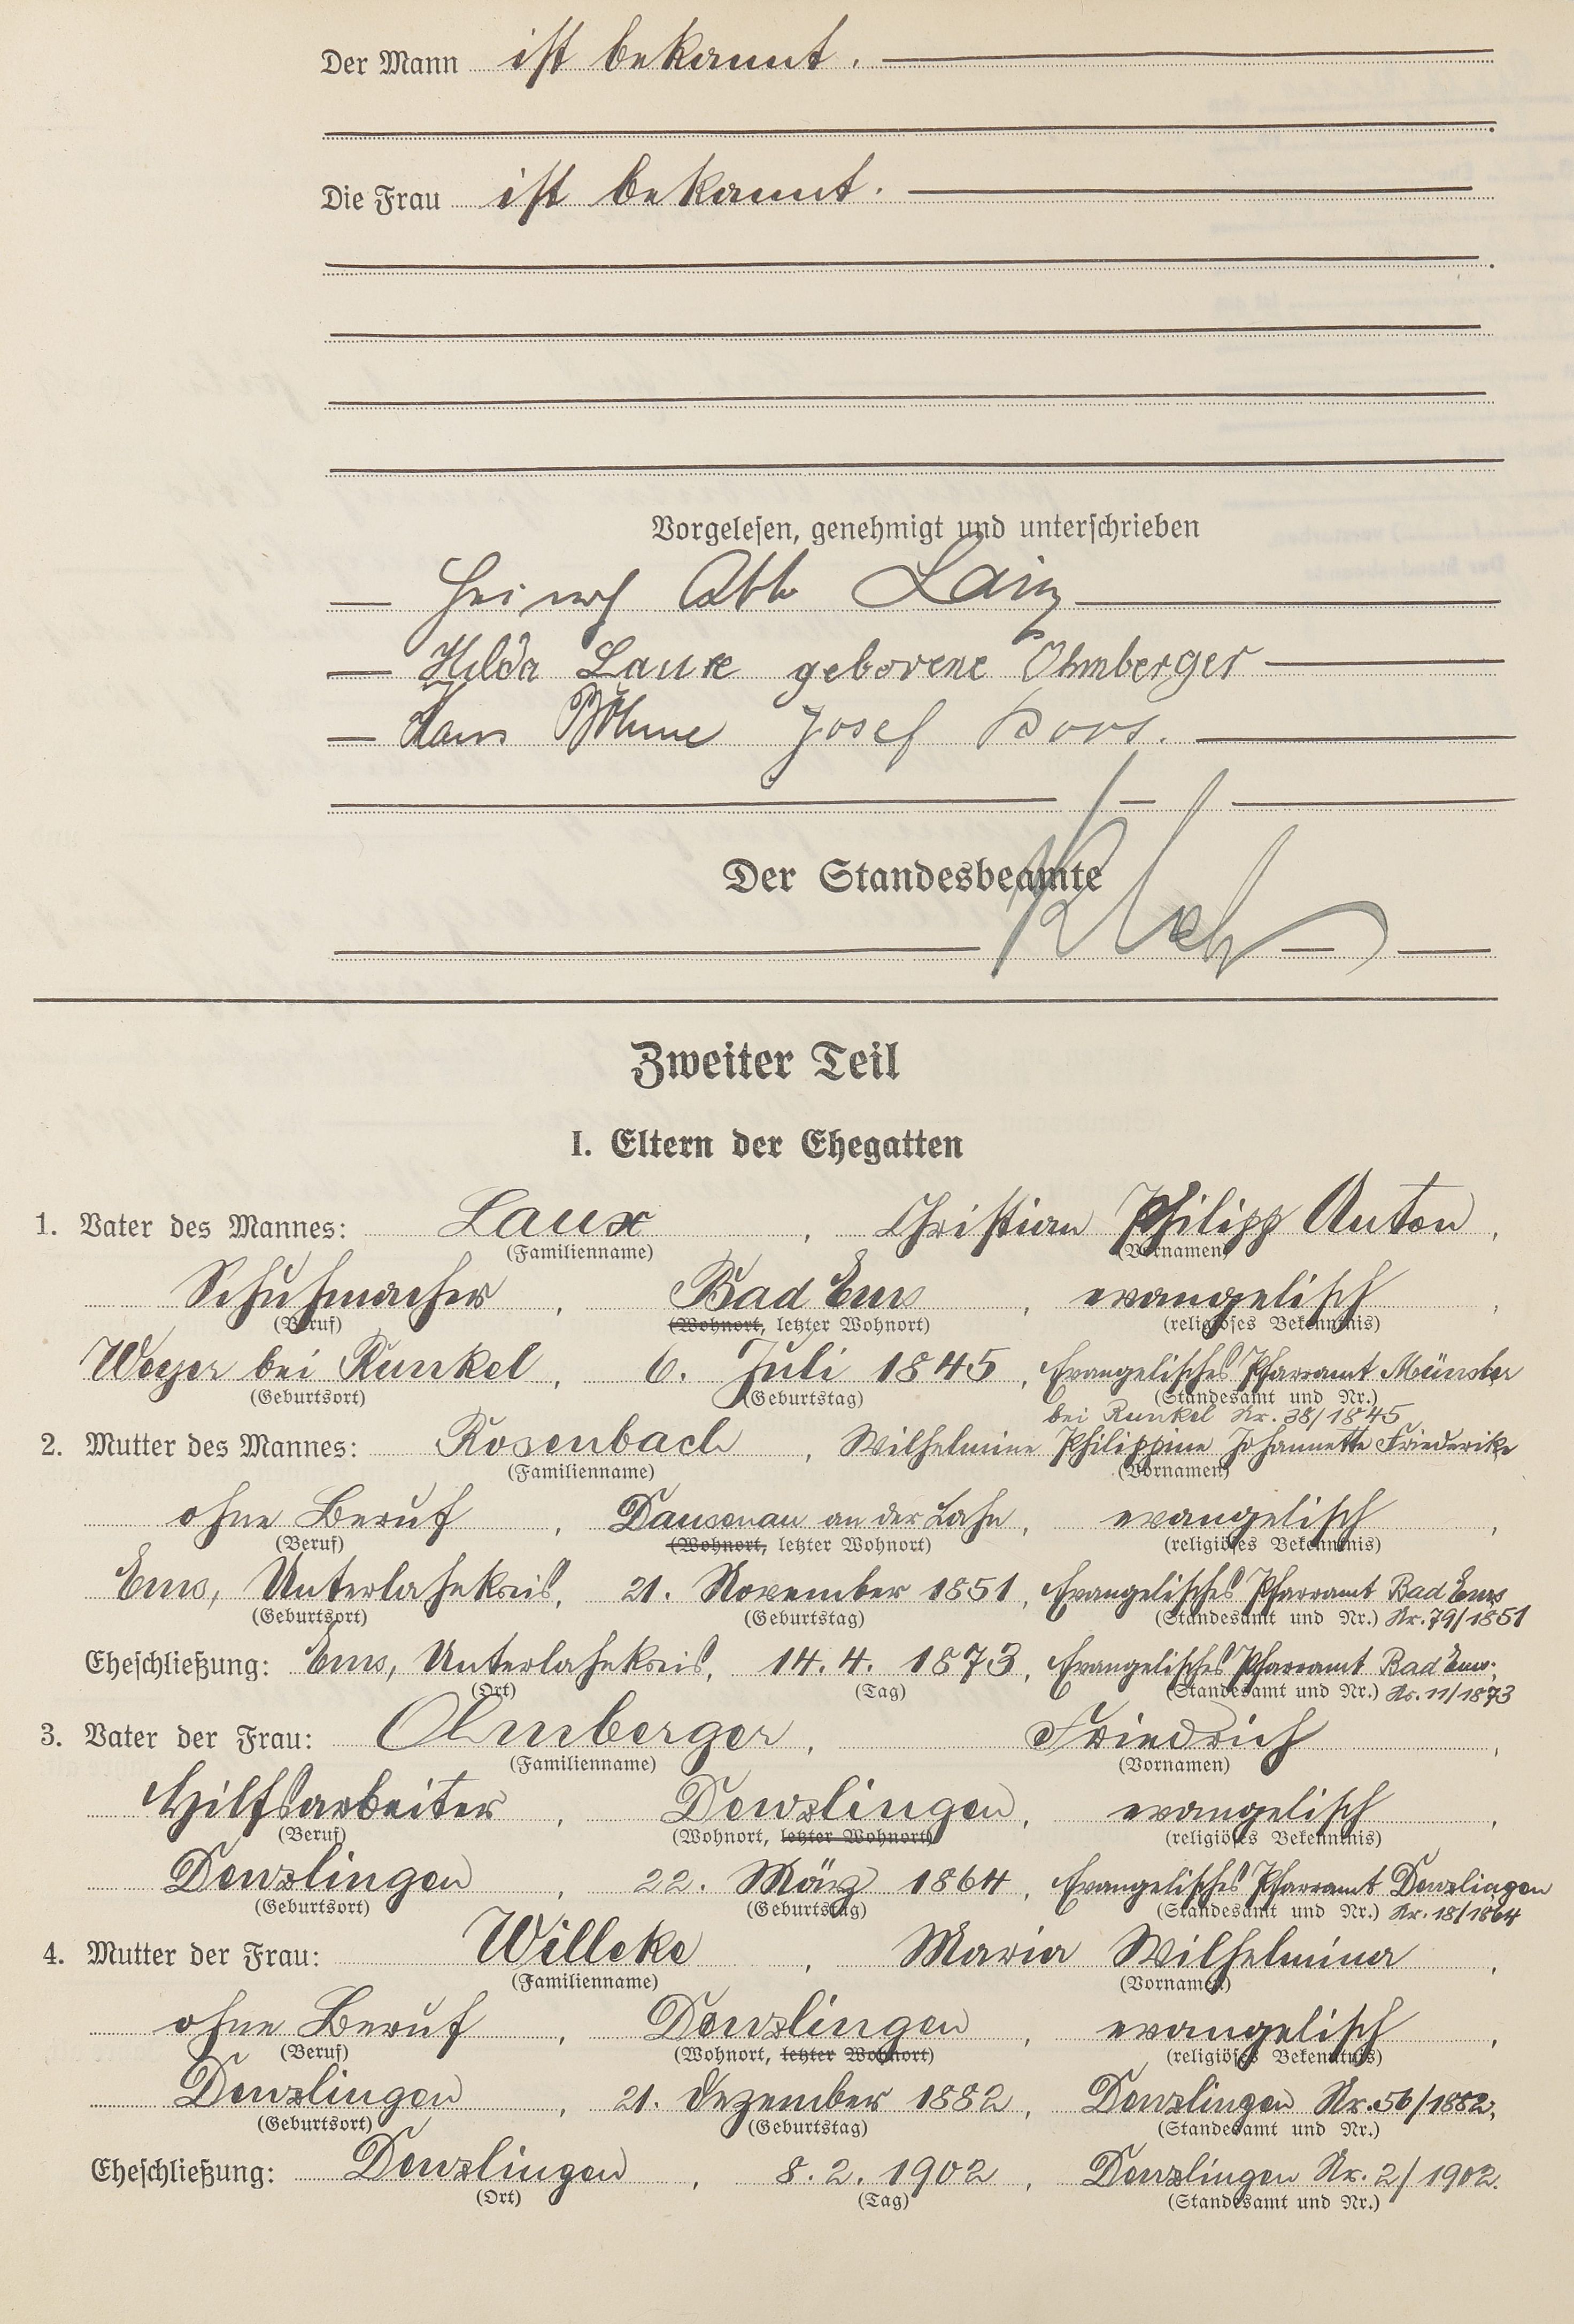 Der Mann ist bekannt.
Die Frau ist bekannt.
Vorgelesen, genehmigt und unterschrieben
Heinrich Otto
Hilda Laux geborene Ohmberger
Hans Böhme Josef
Der Standesbeamte
Zweiter Teil
I. Eltern der Ehegatten
1. Vater des Mannes: Laux, Christian Philipp Anton,
(Familienname) (Vornamen)
Schuhmacher, Bad Ems, evangelisch,
(Beruf) (Wohnort, letzter Wohnort) (religiöses Bekenntnis)
Weyer bei Runkel, 6. Juli 1845, Evangelisches Pfarramt Münster
(Geburtsort) (Geburtstag) (Standesamt und Nr.)
bei Runkel Nr. 38/1845
2. Mutter des Mannes: Rosenbach, Wilhelmine Philippine Johannette Friederike
(Familienname) (Vornamen)
ohne Beruf, Dausenau an der Lahn, evangelisch,
(Beruf) (Wohnort, letzter Wohnort) (religiöses Bekenntnis)
Ems, Unterlahnkreis, 21. November 1851, Evangelisches Pfarramt Bad Ems
(Geburtsort) (Geburtstag) (Standesamt und Nr.) Nr. 79/1851
Eheschließung: Ems, Unterlahnkreis, 14.4.1873, Evangelisches Pfarramt Bad Ems,
(Ort) (Tag) (Standesamt und Nr.) Nr. 11/1873
3. Vater der Frau: Ohmberger, Friedrich,
(Familienname) (Vornamen)
Hilfsarbeiter, Denzlingen, evangelisch,
(Beruf) (Wohnort, letzter Wohnort) (religiöses Bekenntnis)
Denzlingen, 22. März 1864, Evangelisches Pfarramt Denzlingen
(Geburtsort) (Geburtstag) (Standesamt und Nr.) Nr. 18/1864
4. Mutter der Frau: Willeke, Maria Wilhelmina,
(Familienname) (Vornamen)
ohne Beruf, Denzlingen, evangelisch,
(Beruf) (Wohnort, letzter Wohnort) (religiöses Bekenntnis)
Denzlingen, 21. Dezember 1882, Denzlingen Nr. 56/1882,
(Geburtsort) (Geburtstag) (Standesamt und Nr.)
Eheschließung: Denzlingen, 8.2.1902, Denzlingen Nr. 2/1902.
(Ort) (Tag) (Standesamt und Nr.)